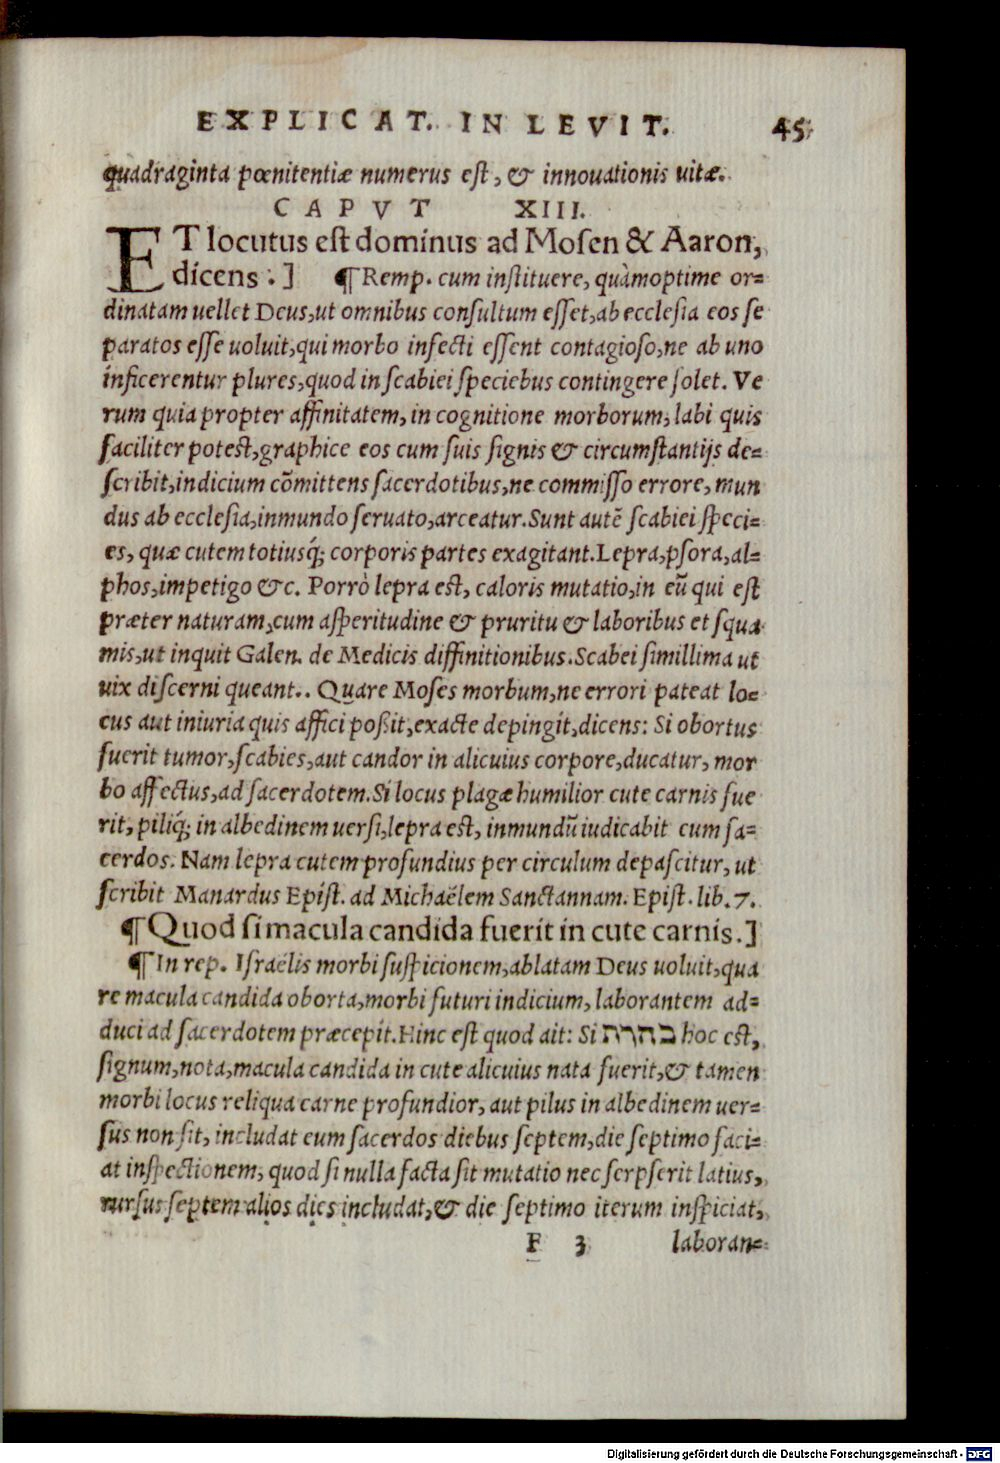 EXPLICAT. IN LEVIT. 45
quadraginta pœnitentiæ numerus est, & innouationis uitæ.
CAPVT XIII.
ET locutus est dominus ad Mosen & Aaron,
dicens.] ¶Remp. cum instituere, quàmoptime or=
dinatam uellet Deus, ut omnibus consultum esset, ab ecclesia eos se
paratos esse uoluit, qui morbo infecti essent contagioso, ne ab uno
inficerentur plures, quod in scabiei speciebus contingere solet. Ve
rum quia propter affinitatem, in cognitione morborum, labi quis
faciliter potest, graphice eos cum suis signis & circumstantijs de=
scribit, indicium cõmittens sacerdotibus, ne commisso errore, mun
dus ab ecclesia, inmundo seruato, arceatur. Sunt autẽ scabiei speci=
es, quæ cutem totiusq́; corporis partes exagitant. Lepra, psora, al=
phos, impetigo &c. Porrò lepra est, caloris mutatio, in eũ qui est
præter naturam, cum asperitudine & pruritu & laboribus et squa
mis, ut inquit Galen. de Medicis diffinitionibus. Scabei simillima ut
uix discerni queant.. Quare Moses morbum, ne errori pateat lo=
cus aut iniuria quis affici poßit, exacte depingit, dicens: Si obortus
fuerit tumor, scabies, aut candor in alicuius corpore, ducatur, mor
bo affectus, ad sacerdotem. Si locus plagæ humilior cute carnis fue
rit, piliq́; in albedinem uersi, lepra est, inmundũ iudicabit cum sa=
cerdos. Nam lepra cutem profundius per circulum depascitur, ut
scribit Manardus Epist. ad Michaëlem Sanctannam. Epist. lib. 7.
¶Quod si macula candida fuerit in cute carnis.]
¶In rep. Israëlis morbi suspicionem, ablatam Deus uoluit, qua
re macula candida oborta, morbi futuri indicium, laborantem ad=
duci ad sacerdotem præcepit. Hinc est quod ait: Si בהרת hoc est,
signum, nota, macula candida in cute alicuius nata fuerit, & tamen
morbi locus reliqua carne profundior, aut pilus in albedinem uer=
sus non sit, includat eum sacerdos diebus septem, die septimo faci=
at inspectionem, quod si nulla facta sit mutatio nec serpserit latius,
rursus septem alios dies includat, & die septimo iterum inspiciat,
F 3 laboran=
Digitalisierung gefördert durch die Deutsche Forschungsgemeinschaft - DFG